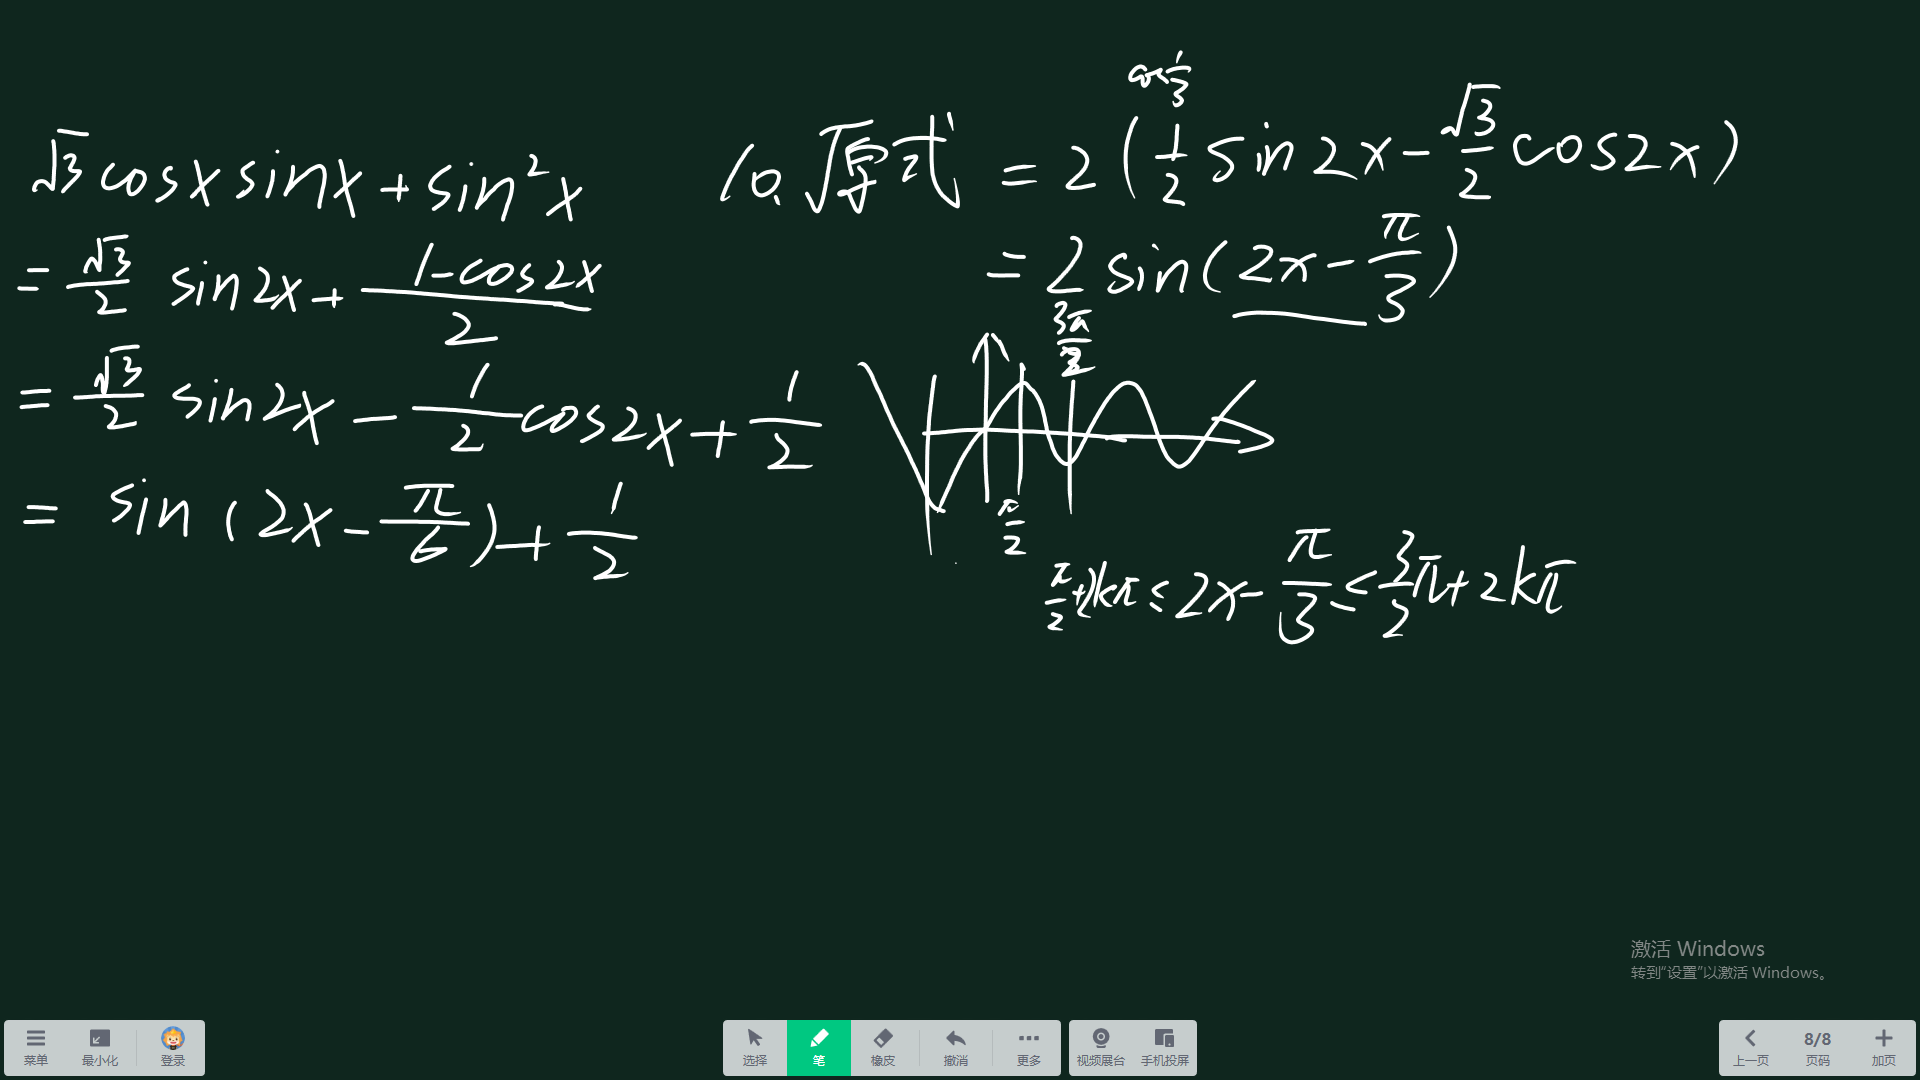 √3 cosx sinx + sin²x
= √3/2 sin2x + (1-cos2x)/2
= √3/2 sin2x - 1/2 cos2x + 1/2
= sin(2x - π/6) + 1/2
cos 1/3
10. √原式 = 2(1/2 sin2x - √3/2 cos2x)
= 2 sin(2x - π/3)
3π/2
π/2
π/2 + 2kπ ≤ 2x - π/3 ≤ 3/2 π + 2kπ
激活 Windows
转到“设置”以激活 Windows。
菜单 最小化 登录 选择 笔 橡皮 撤消 更多 视频展台 手机投屏 上一页 8/8 页码 加页